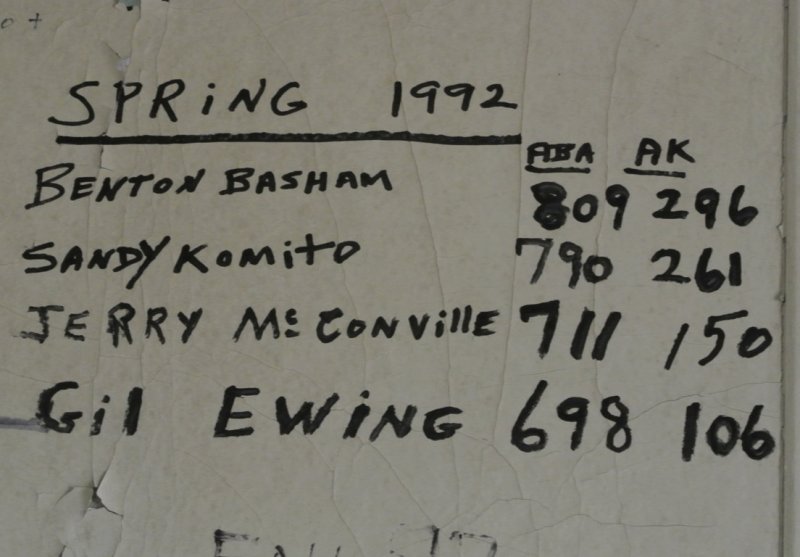 SPRiNG 1992
ABA AK
BENTON BASHAM 809 296
SANDY KOMitO 790 261
JERRY McCONVillE 711 150
Gil EWiNG 698 106